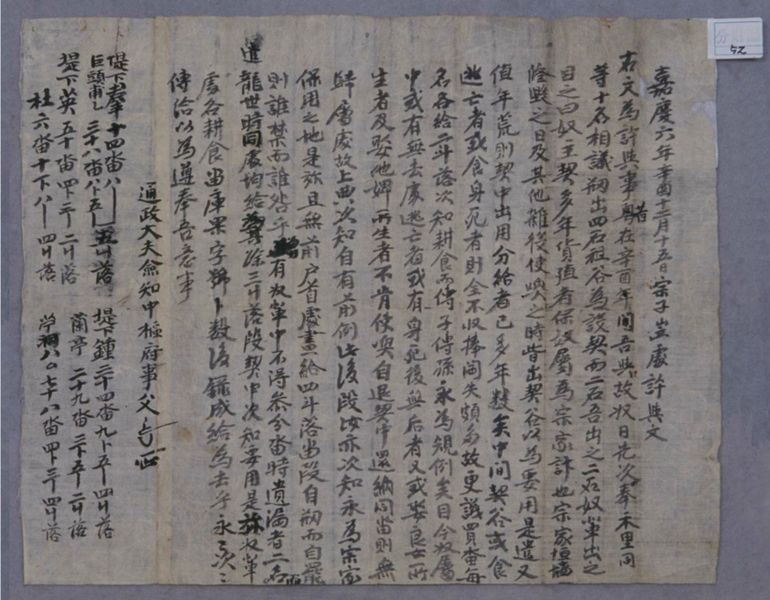 嘉慶六年辛酉十二月十五日宗子豈處許與文
右文爲許與事粤昔在辛酉年間吾與故奴日先次奉木里同
等十名相議刱出四石租谷爲設契而二石吾出之二石奴輩出之
目之曰奴主契多年貨殖者保奴屬爲宗家計也宗家垣墻
修毁之日及其他雜役使喚之時皆出契谷以爲要用是遣又
値年荒則契中出用分給者已多年數矣中間契谷或食
逃亡者或食身死者則全不収捧閪失頗多故更議買畓每
名各給一斗落次知耕食而傳子傳孫永爲規例矣目今奴屬
中或有無去處逃亡者或有身死後無后者又或娶良女所
生者及娶他婢所生者不肯使喚自退契中還納同畓則無
歸屬處故上典次知自有前例此後段皆亦次知永爲宗家
倂用之地是旀且無前戶首處畫給四斗落畓段自刱而自罷
則誰禁而誰咎乎有奴輩中不得參分畓時遺漏者二名
進龍世時同處均給其餘三斗落段契中次知要用是旀奴輩
處各耕食畓庫果字號卜數後錄成給爲去乎永永
傳給以爲遵奉吾意事
通政大夫僉知中樞府事父
堤下 十四畓八卜 五斗落
巨頭甫 三十八畓八卜五 斗落
堤下英五十畓四卜三 二斗落
杜六畓十下八卜 四斗落
堤下鍾三十四畓九卜五 四斗落
蘭亭 二十九畓三卜五 二斗落
八 七十八畓四卜三 四斗落
52